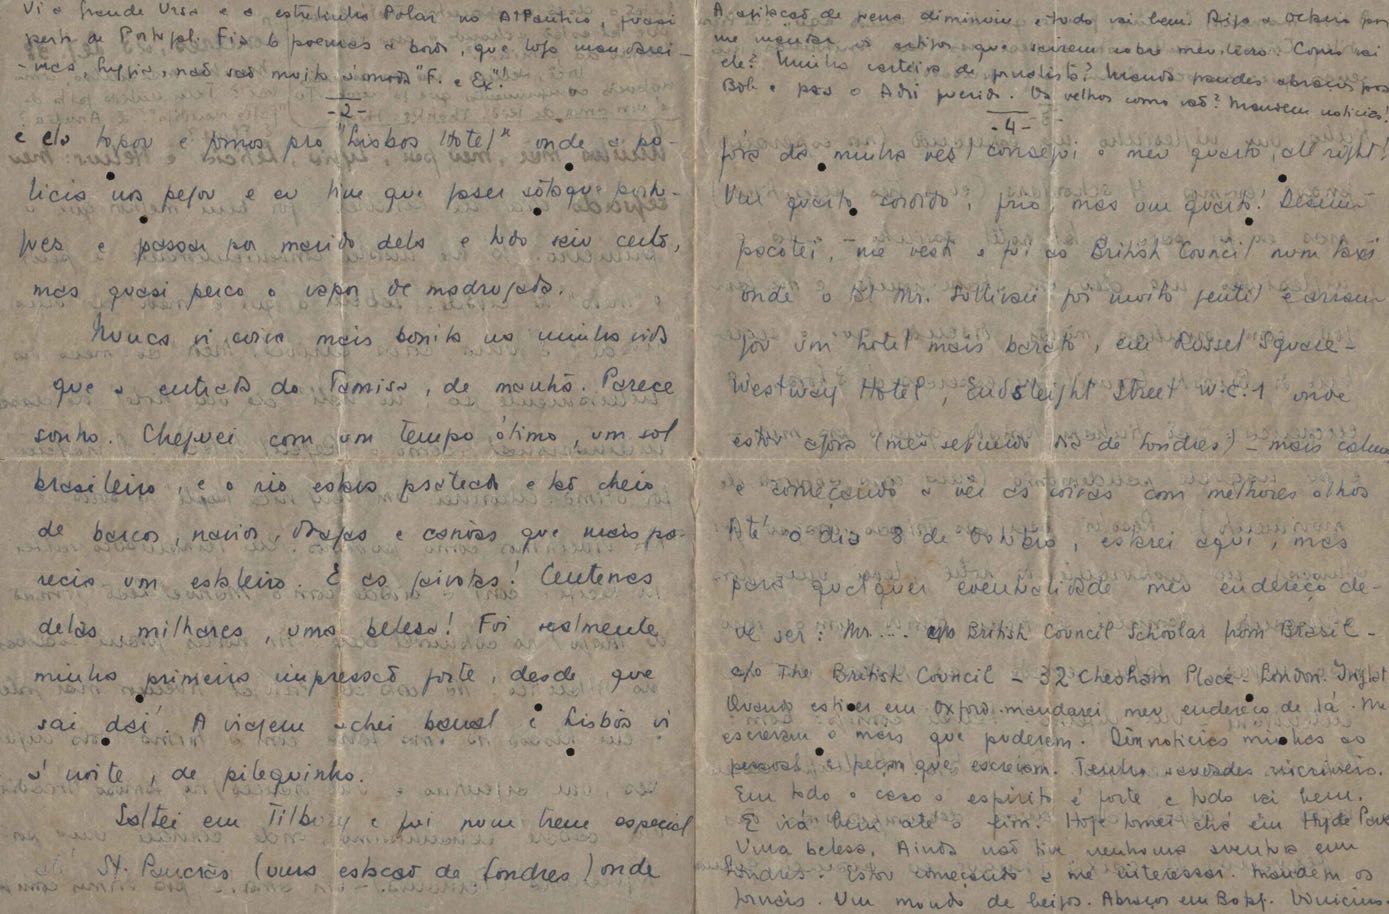 Vi a Grande Ursa e a estrelinha Polar no Atlantico, quasi
perto de Portugal. Fiz 6 poemas a bordo, que logo mandarei
mas, não são muito à moda "F. e Ex."!
-2-
e ela topou e fomos pro "Lisboa Hotel" onde a po-
licia nos pegou e eu tive que fazer sotaque portu-
gues e passar por marido dela e tudo saiu certo,
mas quasi perco o vapor de madrugada.
Nunca vi coisa mais bonita na minha vida
que a entrada do Tamisa, de manhã. Parece
sonho. Cheguei com um tempo ótimo, um sol
brasileiro, e o rio estava prateado e tão cheio
de barcos, navios, dragas e canôas que mais pa-
recia um estaleiro. E as gaivotas! Centenas
delas, milhares, uma beleza! Foi realmente
minha primeira impressão forte, desde que
sai daí. A viagem achei banal e Lisbôa vi
à noite, de pileguinho.
Saltei em Tilbury e fui num trem especial
St. Pancras (uma estação de Londres) onde
A agitação de guerra diminuiu e tudo vai bem. Diga a Octavio for
me mandar os artigos que sairem sobre meu livro. Como vai
ele? Minha carteira de jornalista? Mando grandes abraços pra
Bob e pro Adri querido. Os velhos como vão? Mandem noticias!
-4-
fóra da minha vez) consegui o meu quarto, all right!
Um quarto sordido, frio, mas um quarto! Desem-
pacotei, me vesti e fui ao British Council num taxi
onde o tal Mr. Sullivan foi muito gentil e arran-
jou um hotel mais barato, em Russel Square -
Westway Hotel, Endsleight Street W.C.1 onde
estou agora (meu segundo dia de Londres) - mais calmo
e começando a ver as coisas com melhores olhos
Até o dia 8 de Outubro, estarei aqui, mas
para qualquer eventualidade meu endereço de-
ve ser: Mr.... c/o British Council Schoolar from Brasil -
c/o The British Council - 32 Chesham Place - London. Inglat
Quando estiver em Oxford mandarei meu endereço de lá. Me
escrevam o mais que puderem. Dêm noticias minhas ao
pessoal e peçam que escrevam. Tenho saudades incriveis.
Em todo o caso o espirito é forte e tudo vai bem.
E irá bem até o fim. Hoje tomei chá em Hyde Park
Uma beleza. Ainda não tive nenhuma aventura em
Londres. Estou começando a me interessar. Mandem os
jornais. Um mundo de beijos. Abraços em Vinicius.